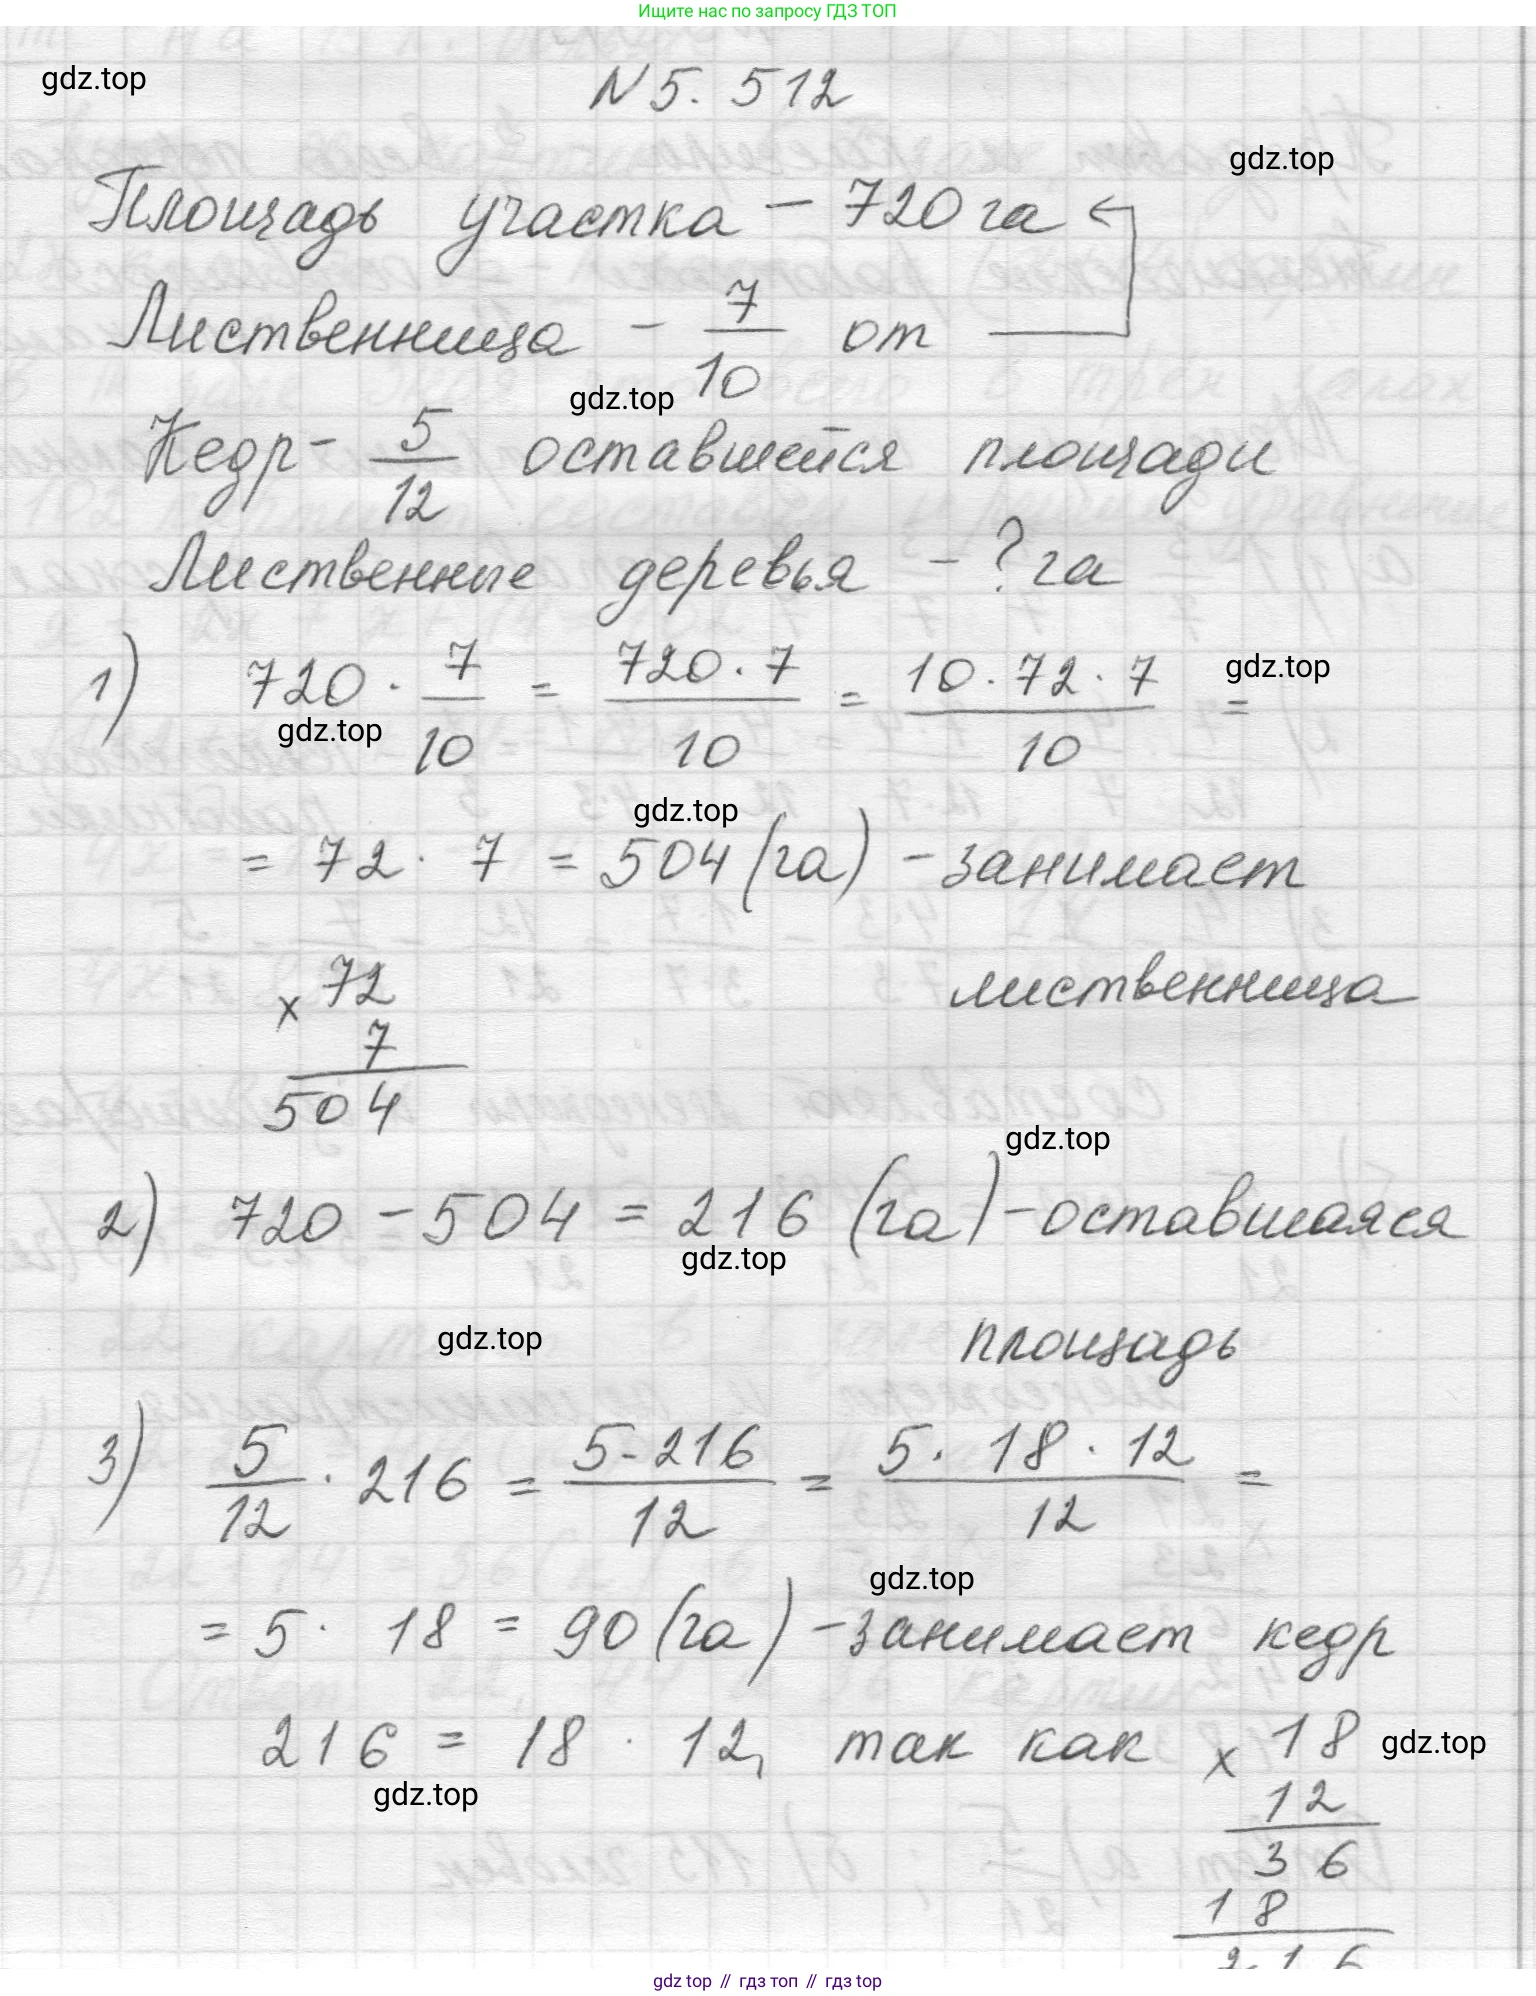 Ищите нас по запросу ГДЗ ТОП
gdz.top
N 5. 512
gdz.top
Площадь участка - 720 га
Лиственница - 7/10 от
gdz.top
Кедр - 5/12 оставшейся площади
Лиственные деревья - ? га
1) 720 · 7/10 = 720 · 7/10 = 10 · 72 · 7/10 =
gdz.top
gdz.top
gdz.top
= 72 · 7 = 504 (га) - занимает
лиственница
× 72
7
504
gdz.top
2) 720 - 504 = 216 (га) - оставшаяся
gdz.top
площадь
gdz.top
3) 5/12 · 216 = 5 · 216/12 = 5 · 18 · 12/12 =
gdz.top
= 5 · 18 = 90 (га) - занимает кедр
216 = 18 · 12, так как × 18
gdz.top
gdz.top
12
36
18
216
gdz.top // гдз топ // гдз top